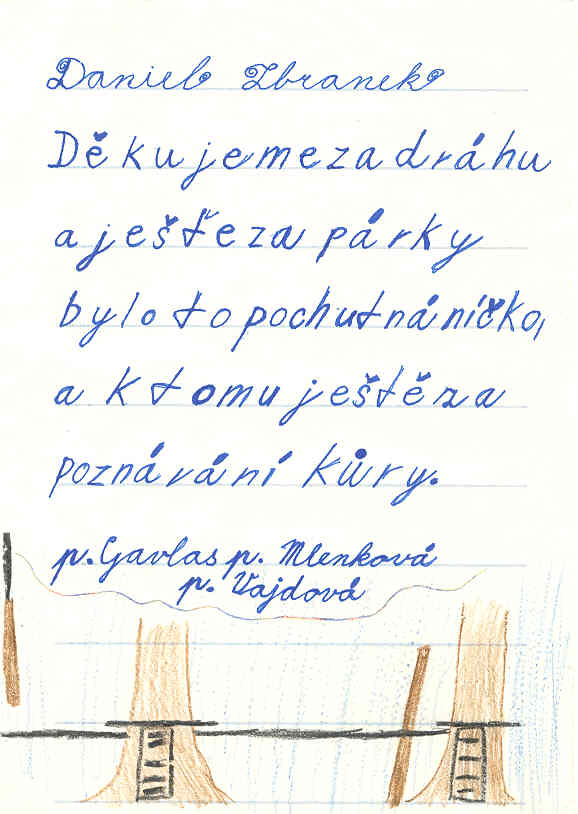 Daniel Zbranek
Děkujeme za dráhu
a ješťe za párky
bylo to pochutnáníčko,
a k tomu ještě za
poznávání kůry.
p. Gavlas p. Mlenková
p. Vajdová